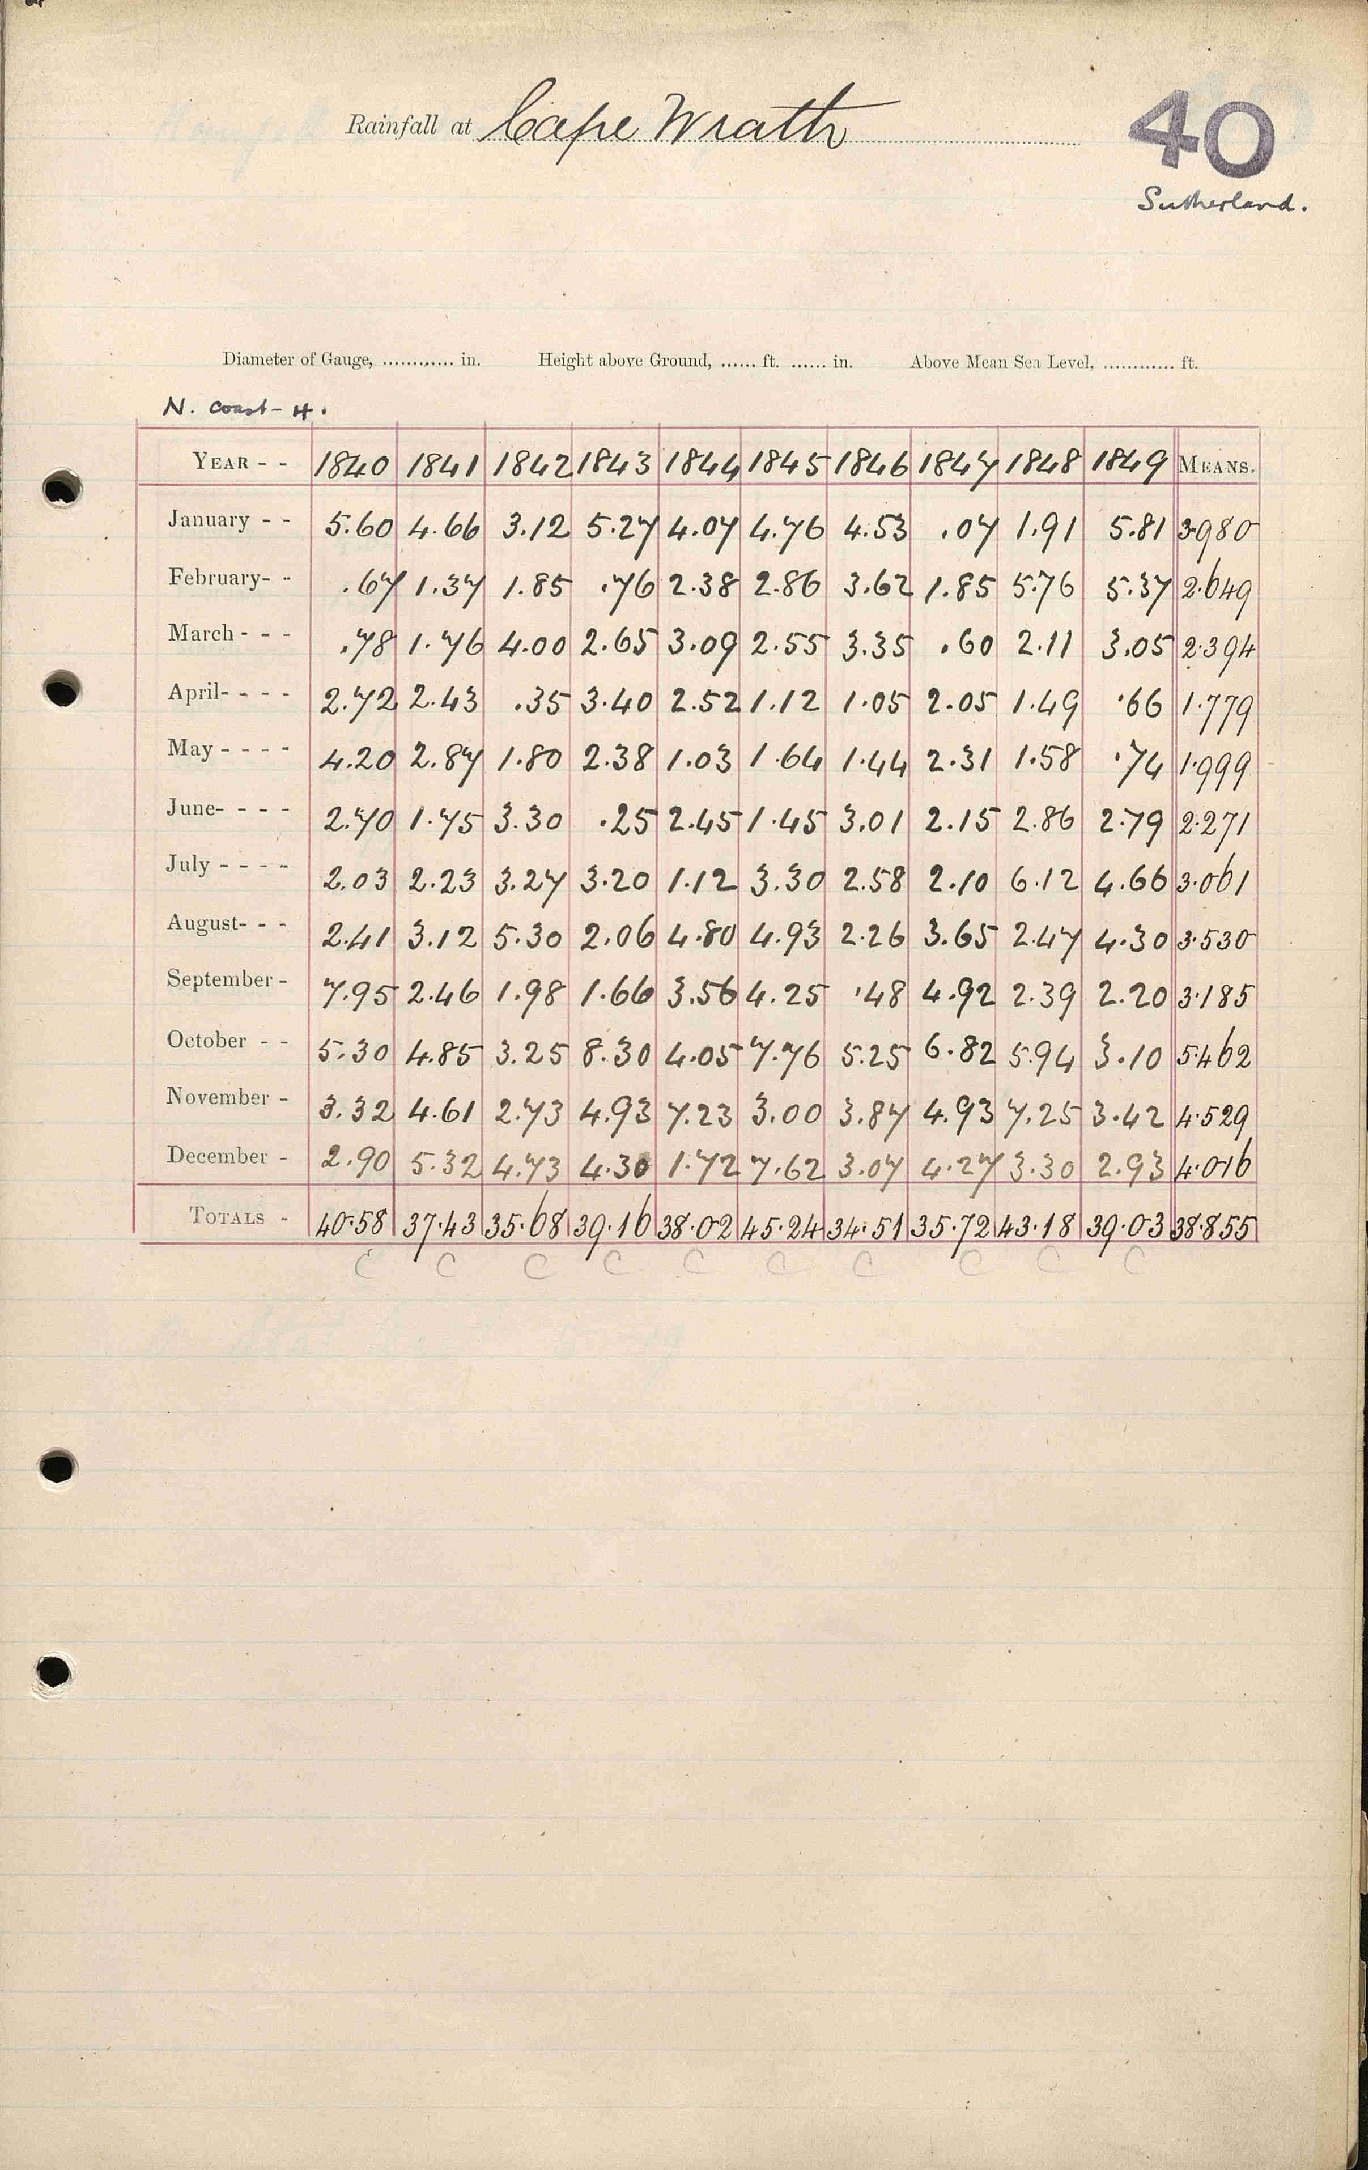 Rainfall at Cape Wrath
40
Sutherland.
Diameter of Gauge, ............ in. Height above Ground, ...... ft. ...... in. Above Mean Sea Level, ............ ft.
N. coast - H.
YEAR - - 1840 1841 1842 1843 1844 1845 1846 1847 1848 1849 MEANS.
January - - 5.60 4.66 3.12 5.27 4.07 4.76 4.53 .07 1.91 5.81 3.980
February- - .67 1.37 1.85 .76 2.38 2.86 3.62 1.85 5.76 5.37 2.649
March - - - .78 1.76 4.00 2.65 3.09 2.55 3.35 .60 2.11 3.05 2.394
April- - - - 2.72 2.43 .35 3.40 2.52 1.12 1.05 2.05 1.49 .66 1.779
May - - - - 4.20 2.87 1.80 2.38 1.03 1.64 1.44 2.31 1.58 .74 1.999
June- - - - 2.70 1.75 3.30 .25 2.45 1.45 3.01 2.15 2.86 2.79 2.271
July - - - - 2.03 2.23 3.27 3.20 1.12 3.30 2.58 2.10 6.12 4.66 3.061
August- - - 2.41 3.12 5.30 2.06 4.80 4.93 2.26 3.65 2.47 4.30 3.530
September - 7.95 2.46 1.98 1.66 3.56 4.25 .48 4.92 2.39 2.20 3.185
October - - 5.30 4.85 3.25 8.30 4.05 7.76 5.25 6.82 5.94 3.10 5.462
November - 3.32 4.61 2.73 4.93 7.23 3.00 3.87 4.93 7.25 3.42 4.529
December - 2.90 5.32 4.73 4.30 1.72 7.62 3.07 4.27 3.30 2.93 4.016
TOTALS - 40.58 37.43 35.68 39.16 38.02 45.24 34.51 35.72 43.18 39.03 38.855
C C C C C C C C C C